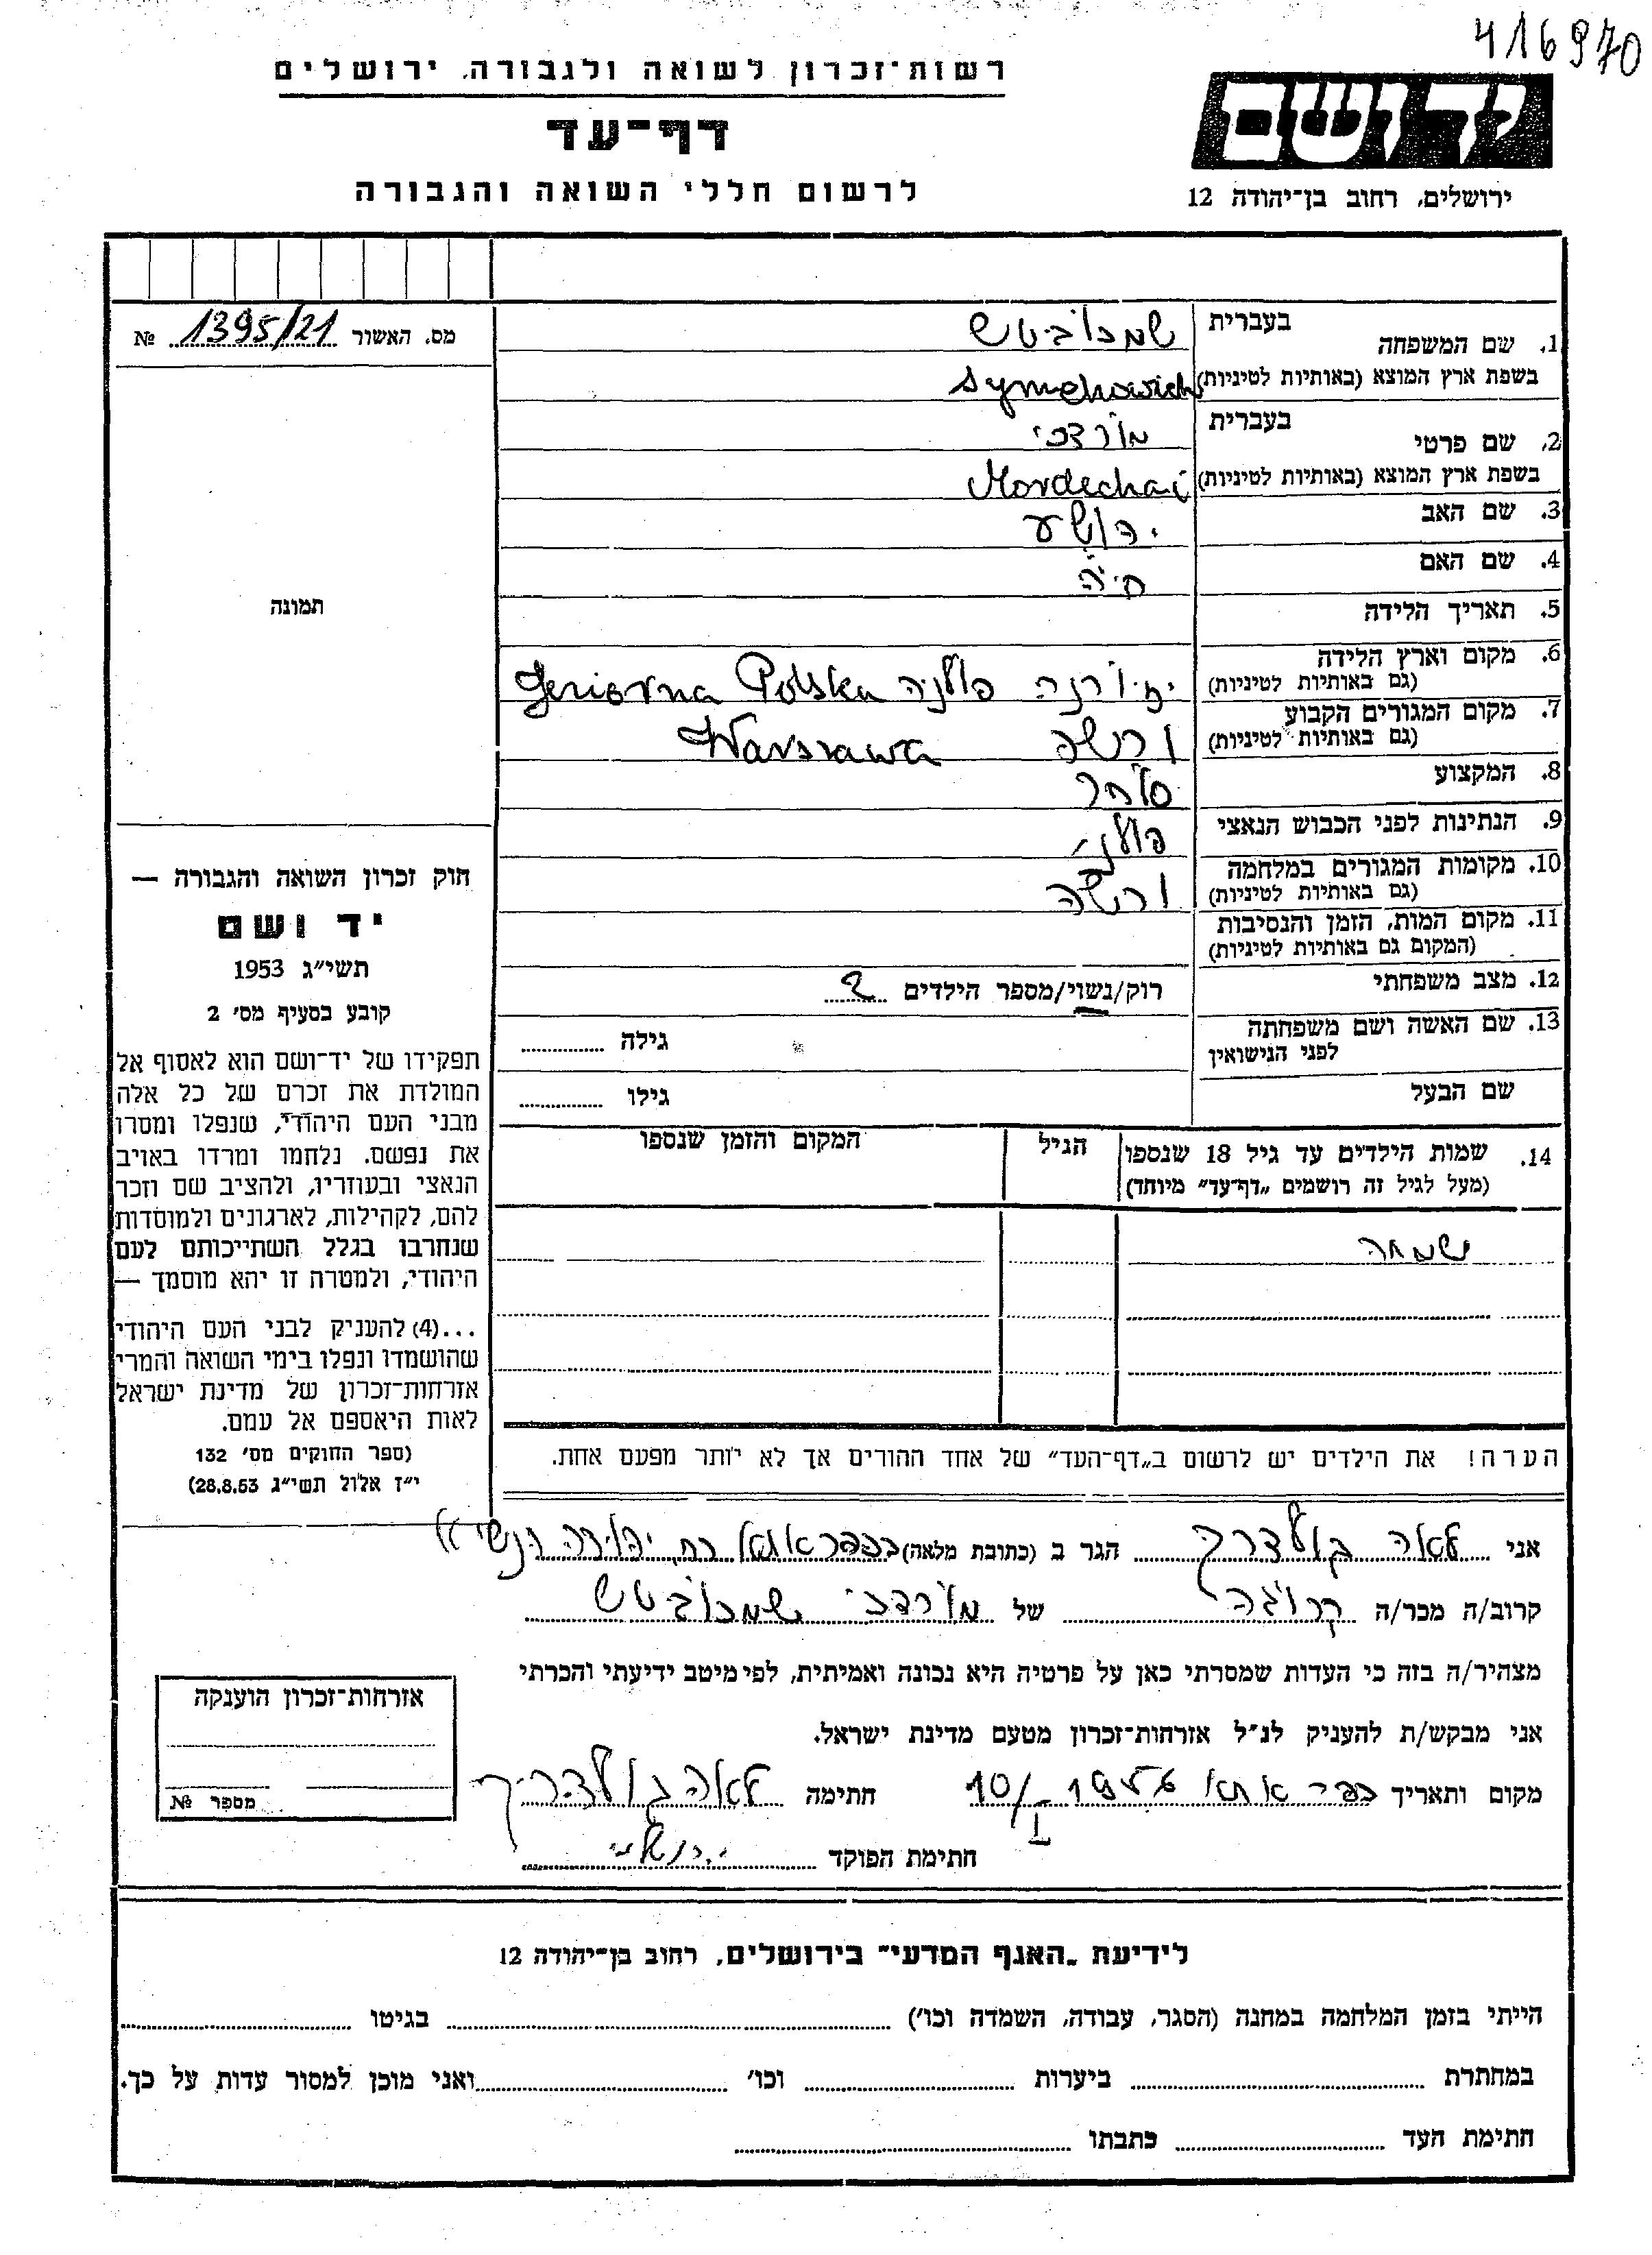 416970
רשות-זכרון לשואה ולגבורה, ירושלים
דף-עד
לרשום חללי השואה והגבורה
יד ושם
ירושלים, רחוב בן-יהודה 12
מס. האשור 1395/21 №
תמונה
חוק זכרון השואה והגבורה —
יד ושם
תשי״ג 1953
קובע בסעיף מס׳ 2
תפקידו של יד-ושם הוא לאסוף אל
המולדת את זכרם של כל אלה
מבני העם היהודי, שנפלו ומסרו
את נפשם, נלחמו ומרדו באויב
הנאצי ובעוזריו, ולהציב שם וזכר
להם, לקהילות, לארגונים ולמוסדות
שנחרבו בגלל השתייכותם לעם
היהודי, ולמטרה זו יהא מוסמך —
...(4) להעניק לבני העם היהודי
שהושמדו ונפלו בימי השואה והמרי
אזרחות-זכרון של מדינת ישראל
לאות היאספם אל עמם.
(ספר החוקים מס׳ 132
י״ז אלול תשי״ג 28.8.53)
1. שם המשפחה בעברית שמכוביטש
בשפת ארץ המוצא (באותיות לטיניות) Symchowich
2. שם פרטי בעברית מורדכי
בשפת ארץ המוצא (באותיות לטיניות) Mordechai
3. שם האב יהושע
4. שם האם חיה
5. תאריך הלידה
6. מקום וארץ הלידה (גם באותיות לטיניות) יזיורנה פולניה Jeriorna Polska
7. מקום המגורים הקבוע (גם באותיות לטיניות) ורשה Warszawa
8. המקצוע סוחר
9. הנתינות לפני הכבוש הנאצי פולני
10. מקומות המגורים במלחמה (גם באותיות לטיניות) ורשה
11. מקום המות, הזמן והנסיבות (המקום גם באותיות לטיניות)
12. מצב משפחתי רוק/נשוי/מספר הילדים 2
13. שם האשה ושם משפחתה לפני הנישואין גילה
שם הבעל גילו
14. שמות הילדים עד גיל 18 שנספו הגיל המקום והזמן שנספו
(מעל לגיל זה רושמים „דף-עד״ מיוחד)
שמחה
הערה! את הילדים יש לרשום ב„דף-העד״ של אחד ההורים אך לא יותר מפעם אחת.
אני לאה גולדברג הגר ב (כתובת מלאה) בכפר אתא רח יהודה הנשיא
קרוב/ה מכר/ה קרובה של מורדכי שמכוביטש
מצהיר/ה בזה כי העדות שמסרתי כאן על פרטיה היא נכונה ואמיתית, לפי מיטב ידיעתי והכרתי
אני מבקש/ת להעניק לנ״ל אזרחות-זכרון מטעם מדינת ישראל.
מקום ותאריך כפר אתא 10/I חתימה לאה גולדברג
חתימת הפוקד
אזרחות-זכרון הוענקה
מספר №
לידיעת „האגף המדעי״ בירושלים, רחוב בן-יהודה 12
הייתי בזמן המלחמה במחנה (הסגר, עבודה, השמדה וכו׳) בגיטו
במחתרת ביערות וכו׳ ואני מוכן למסור עדות על כך.
חתימת העד כתבתו